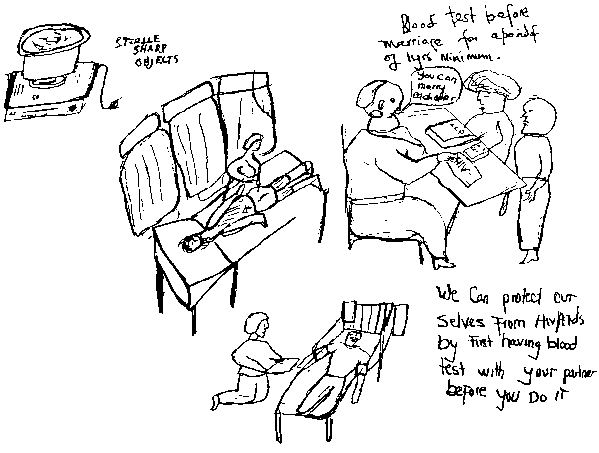 STERILE
SHARP
OBJECTS
Blood test before
marriage for a period
of 4yrs minimum.
You can
marry
each other
We Can protect our
selves From HIV/Aids
by First having blood
test with your partner
before you Do iT